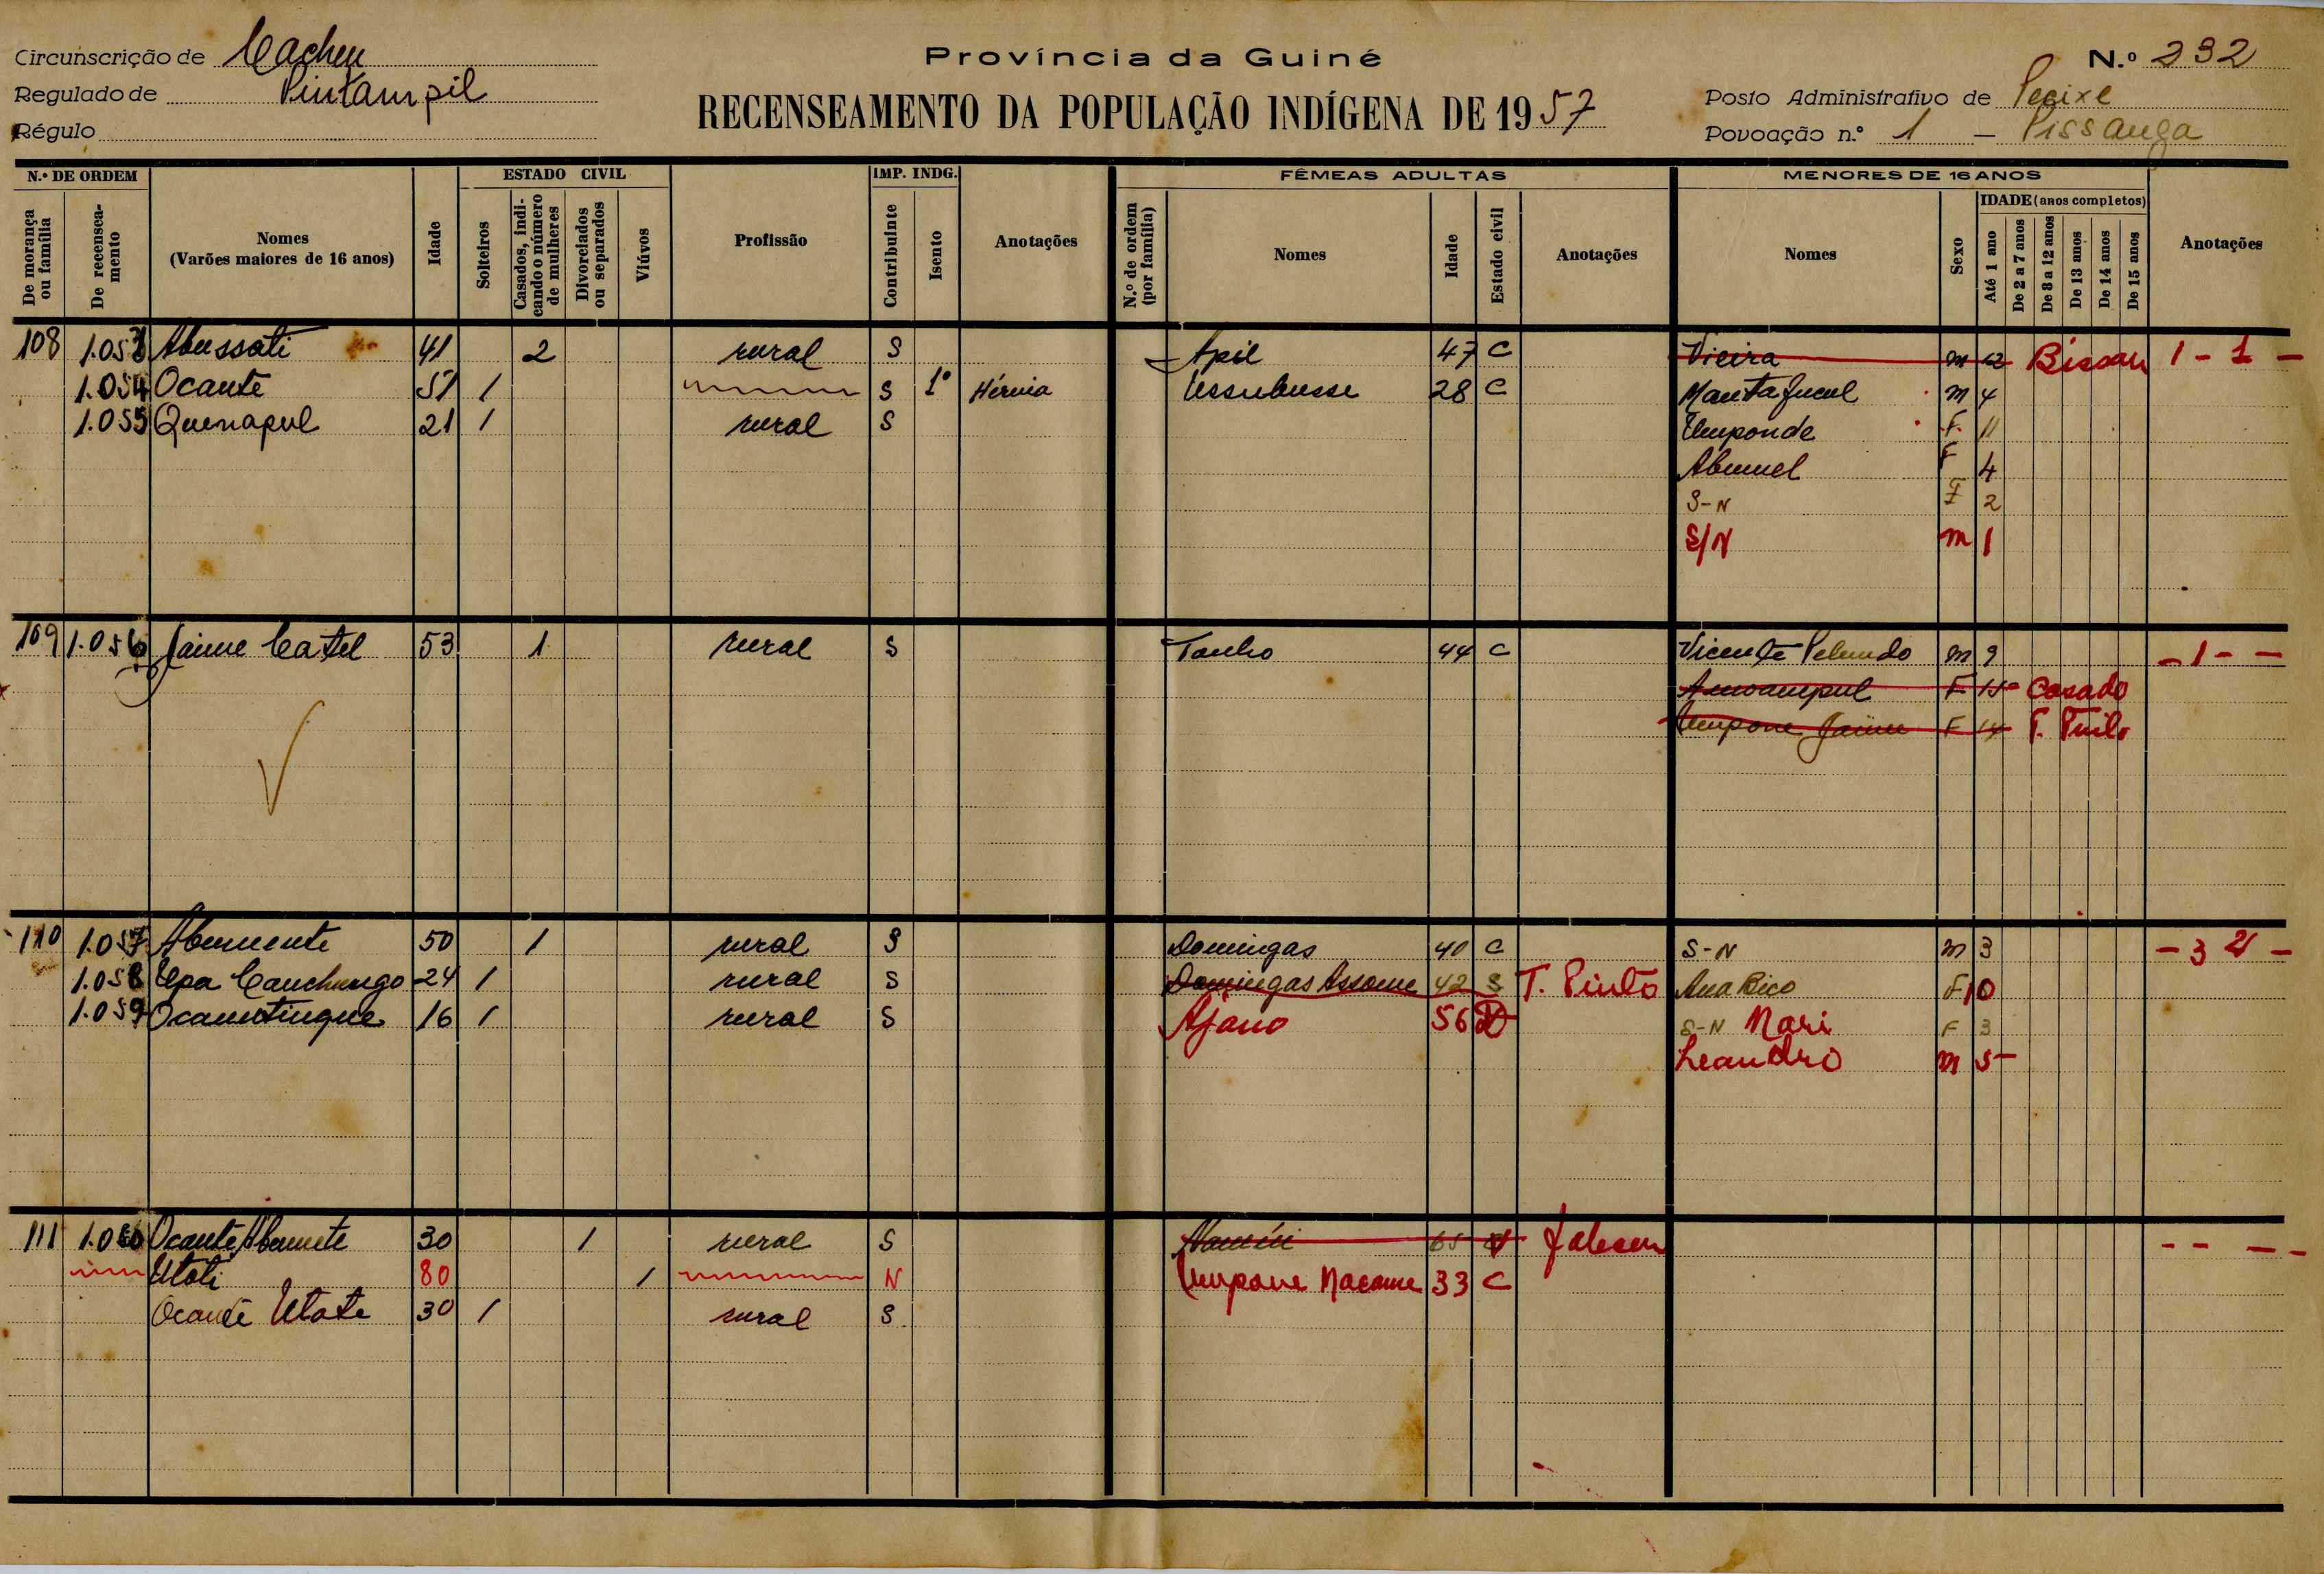 Província da Guiné
RECENSEAMENTO DA POPULAÇÃO INDÍGENA DE 1957
Circunscrição de Cacheu
Regulado de Pintampil
Régulo
N.º 232
Posto Administrativo de Pecixe
Povoação n.º 1 – Pissanga
N.º DE ORDEM
De morança ou família
De recenseamento
Nomes
(Varões maiores de 16 anos)
Idade
ESTADO CIVIL
Solteiros
Casados, indicando o número de mulheres
Divorciados ou separados
Viúvos
Profissão
IMP. INDG.
Contribuinte
Isento
Anotações
FÊMEAS ADULTAS
N.º de ordem (por família)
Nomes
Idade
Estado civil
Anotações
MENORES DE 16 ANOS
Nomes
Sexo
IDADE (anos completos)
Até 1 ano
De 2 a 7 anos
De 8 a 12 anos
De 13 anos
De 14 anos
De 15 anos
Anotações
108 1.053 Abussati 41 2 rural S Apil 47 C Vieira m 12 Bissau 1 - 1 -
1.054 Ocante 51 1 S 1º Hérnia Ussubusse 28 C m 4
1.055 Quenapul 21 1 rural S Umponde F. 11
Abumel F 4
S-N F 2
S/N m 1
109 1.056 Jaime Catel 53 1 rural S Tanho 44 C Vicente Pelundo m 9 - 1 - -
F 15 Casado
Umpone Jaime F 14 T. Pinto
110 1.057 Abumente 50 1 rural S Domingas 40 C S-N m 3 - 3 2 -
1.058 Upa Canchungo 24 1 rural S Domingas Assome 42 S T. Pinto Ana Bico F 10
1.059 Ocamtingue 16 1 rural S Ajano 56 S-N Nari F 3
Leandro m 5
111 1.060 Ocante Abumete 30 1 rural S 65 V Faleceu - - - -
Utoti 80 1 N Umpone Nacame 33 C
Ocante Utote 30 1 rural S